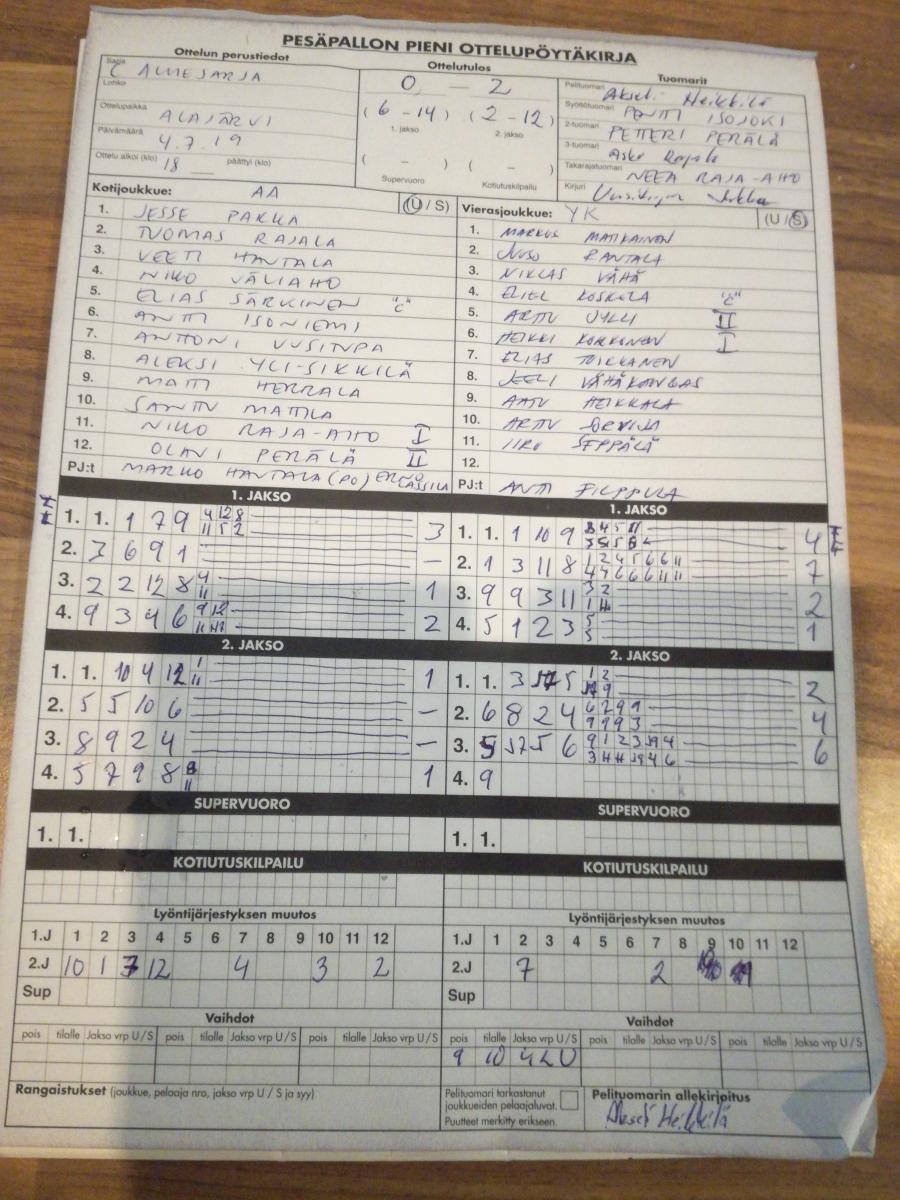 PESÄPALLON PIENI OTTELUPÖYTÄKIRJA
Ottelun perustiedot
Sarja
Lohko
Ottelupaikka ALAJÄRVI
Päivämäärä 4.7.19
Ottelu alkoi (klo) 18 päättyi (klo)
Ottelutulos
0 - 2
(6 - 14) (2 - 12)
1. jakso 2. jakso
( - ) ( - )
Supervuoro Kotiutuskilpailu
Tuomarit
Pelituomari Akseli Heikkilä
Syöttötuomari PENTTI ISOJOKI
2-tuomari PETTERI PERÄLÄ
3-tuomari Asko Rajala
Takarajatuomari NEEA RAJA-AHO
Kirjuri
Kotijoukkue: AA (U / S)
1. JESSE PAKKA
2. TUOMAS RAJALA
3. VEETI HANTALA
4. NIKO VÄLIAHO
5. ELIAS SÄRKINEN "C"
6. ANTTI ISONIEMI
7. ANTTONI UUSITUPA
8. ALEKSI YLI-SIKKILÄ
9. MATTI HERRALA
10. SANTTU MATTILA
11. NIKO RAJA-AHO I
12. OLAVI PERÄLÄ II
PJ:t MARKO HANTALA (PO)
Vierasjoukkue: YK (U / S)
1. MARKUS MATIKAINEN
2. JUSO RANTALA
3. NIKLAS VÄHÄ
4. ELIEL KOSKELA "C"
5. ARTTU UYLLI II
6. HEIKKI KORKONEN I
7. ELIAS TOIKKANEN
8. JEELI VÄHÄKANGAS
9. AATU HEIKKALA
10. ARTTU
11. IIRO SEPPÄLÄ
12.
PJ:t ANTTI FILPPULA
1. JAKSO
1. 1. 1 7 9 4 12 8 3
11 5 2
2. 3 6 9 1 –
3. 2 2 12 8 4 1
11
4. 9 3 4 6 9 12 2
1. JAKSO
1. 1. 1 10 9 4
2. 1 3 11 8 1 2 4 5 6 6 11 7
4 4 6 6 6 11 11
3. 9 9 3 11 3 2 2
4. 5 1 2 3 5 1
5
2. JAKSO
1. 1. 10 4 12 1 1
11
2. 5 5 10 6 –
3. 8 9 2 4 –
4. 5 7 9 8 1
11
2. JAKSO
1. 1. 3 5 1 2 2
9
2. 6 8 2 4 6 2 9 9 4
9 9 9 3
3. 5 5 6 9 1 2 3 4 6
3 4 6
4. 9
SUPERVUORO
1. 1.
SUPERVUORO
1. 1.
KOTIUTUSKILPAILU
KOTIUTUSKILPAILU
Lyöntijärjestyksen muutos
1.J 1 2 3 4 5 6 7 8 9 10 11 12
2.J 10 1 7 12 4 3 2
Sup
Lyöntijärjestyksen muutos
1.J 1 2 3 4 5 6 7 8 9 10 11 12
2.J 7 2
Sup
Vaihdot
pois tilalle Jakso vrp U / S pois tilalle Jakso vrp U / S pois tilalle Jakso vrp U / S
Vaihdot
pois tilalle Jakso vrp U / S pois tilalle Jakso vrp U / S pois tilalle Jakso vrp U / S
9 10 4 2 U
Rangaistukset (joukkue, pelaaja nro, jakso vrp U / S ja syy)
Pelituomari tarkastanut
joukkueiden pelaajaluvat.
Puutteet merkitty erikseen.
Pelituomarin allekirjoitus
Akseli Heikkilä